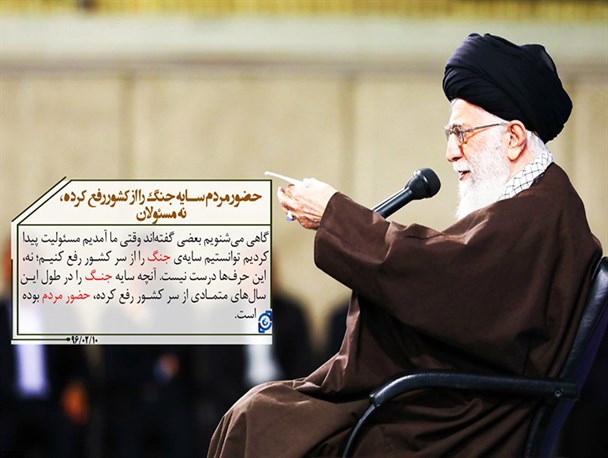 حضور مردم سایه جنگ را از کشور رفع کرده،
نه مسئولان
گاهی می‌شنویم بعضی گفته‌اند وقتی ما آمدیم مسئولیت پیدا
کردیم توانستیم سایه‌ی جنگ را از سر کشور رفع کنیم؛ نه،
این حرف‌ها درست نیست. آنچه سایه جنگ را در طول این
سال‌های متمادی از سر کشور رفع کرده، حضور مردم بوده
است.
۹۶/۰۲/۱۰